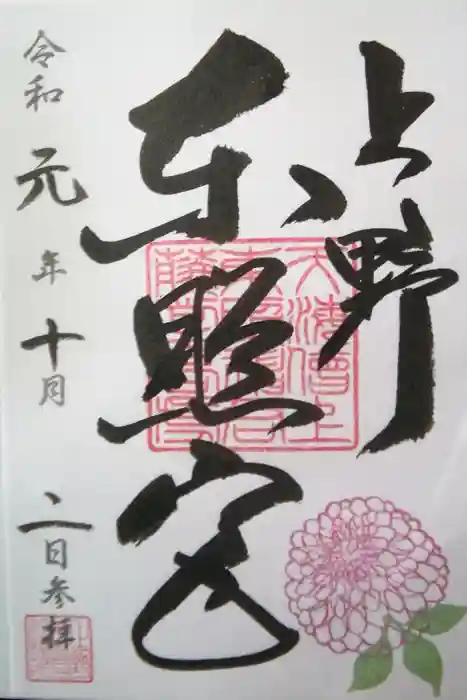 上野
東照宮
令和元年十月二日参拝